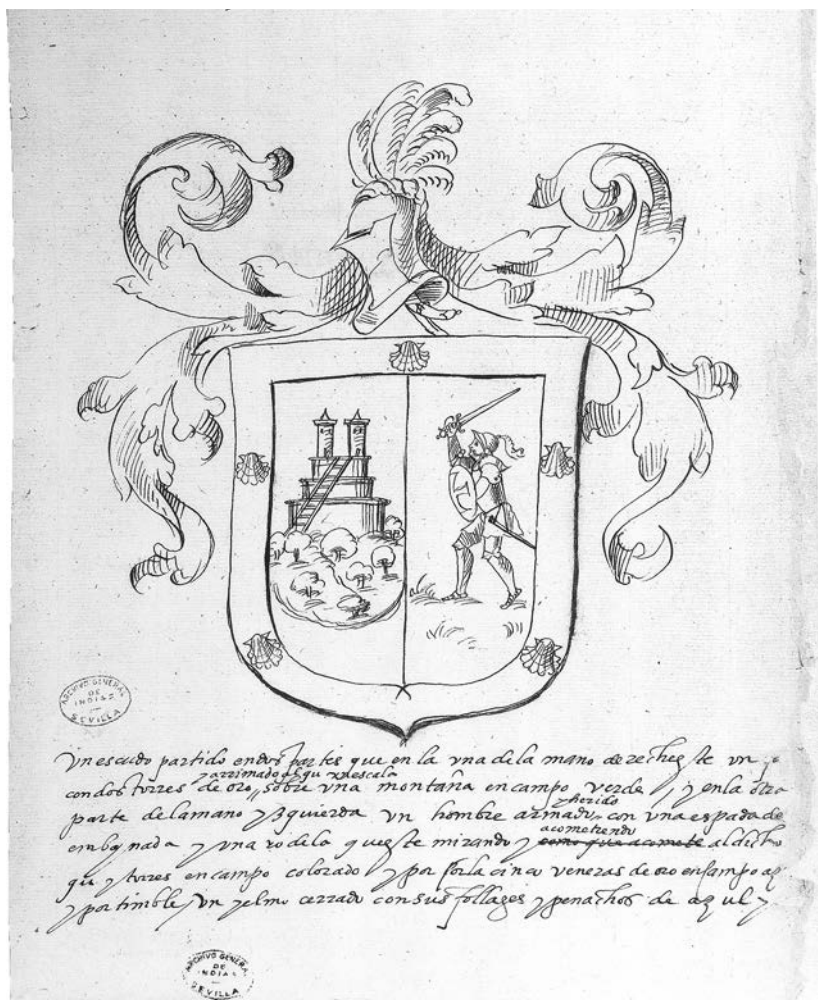 ARCHIVO GENERAL
DE
INDIAS
SEVILLA
Un escudo partido en dos partes que en la una de la mano derecha este un
y arrimado al qu una escala
con dos torres de oro, sobre una montaña en campo verde, y en la otra
y herido
parte de la mano yzquierda un hombre armado con una espada de
acometiendo
embaynada y una rodela que este mirando y como que acomete al dicho
qu y torres en campo colorado y por orla cinco veneras de oro en campo
y por timble un yelmo cerrado con sus follages y penachos de azul y
ARCHIVO GENERAL
DE
INDIAS
SEVILLA